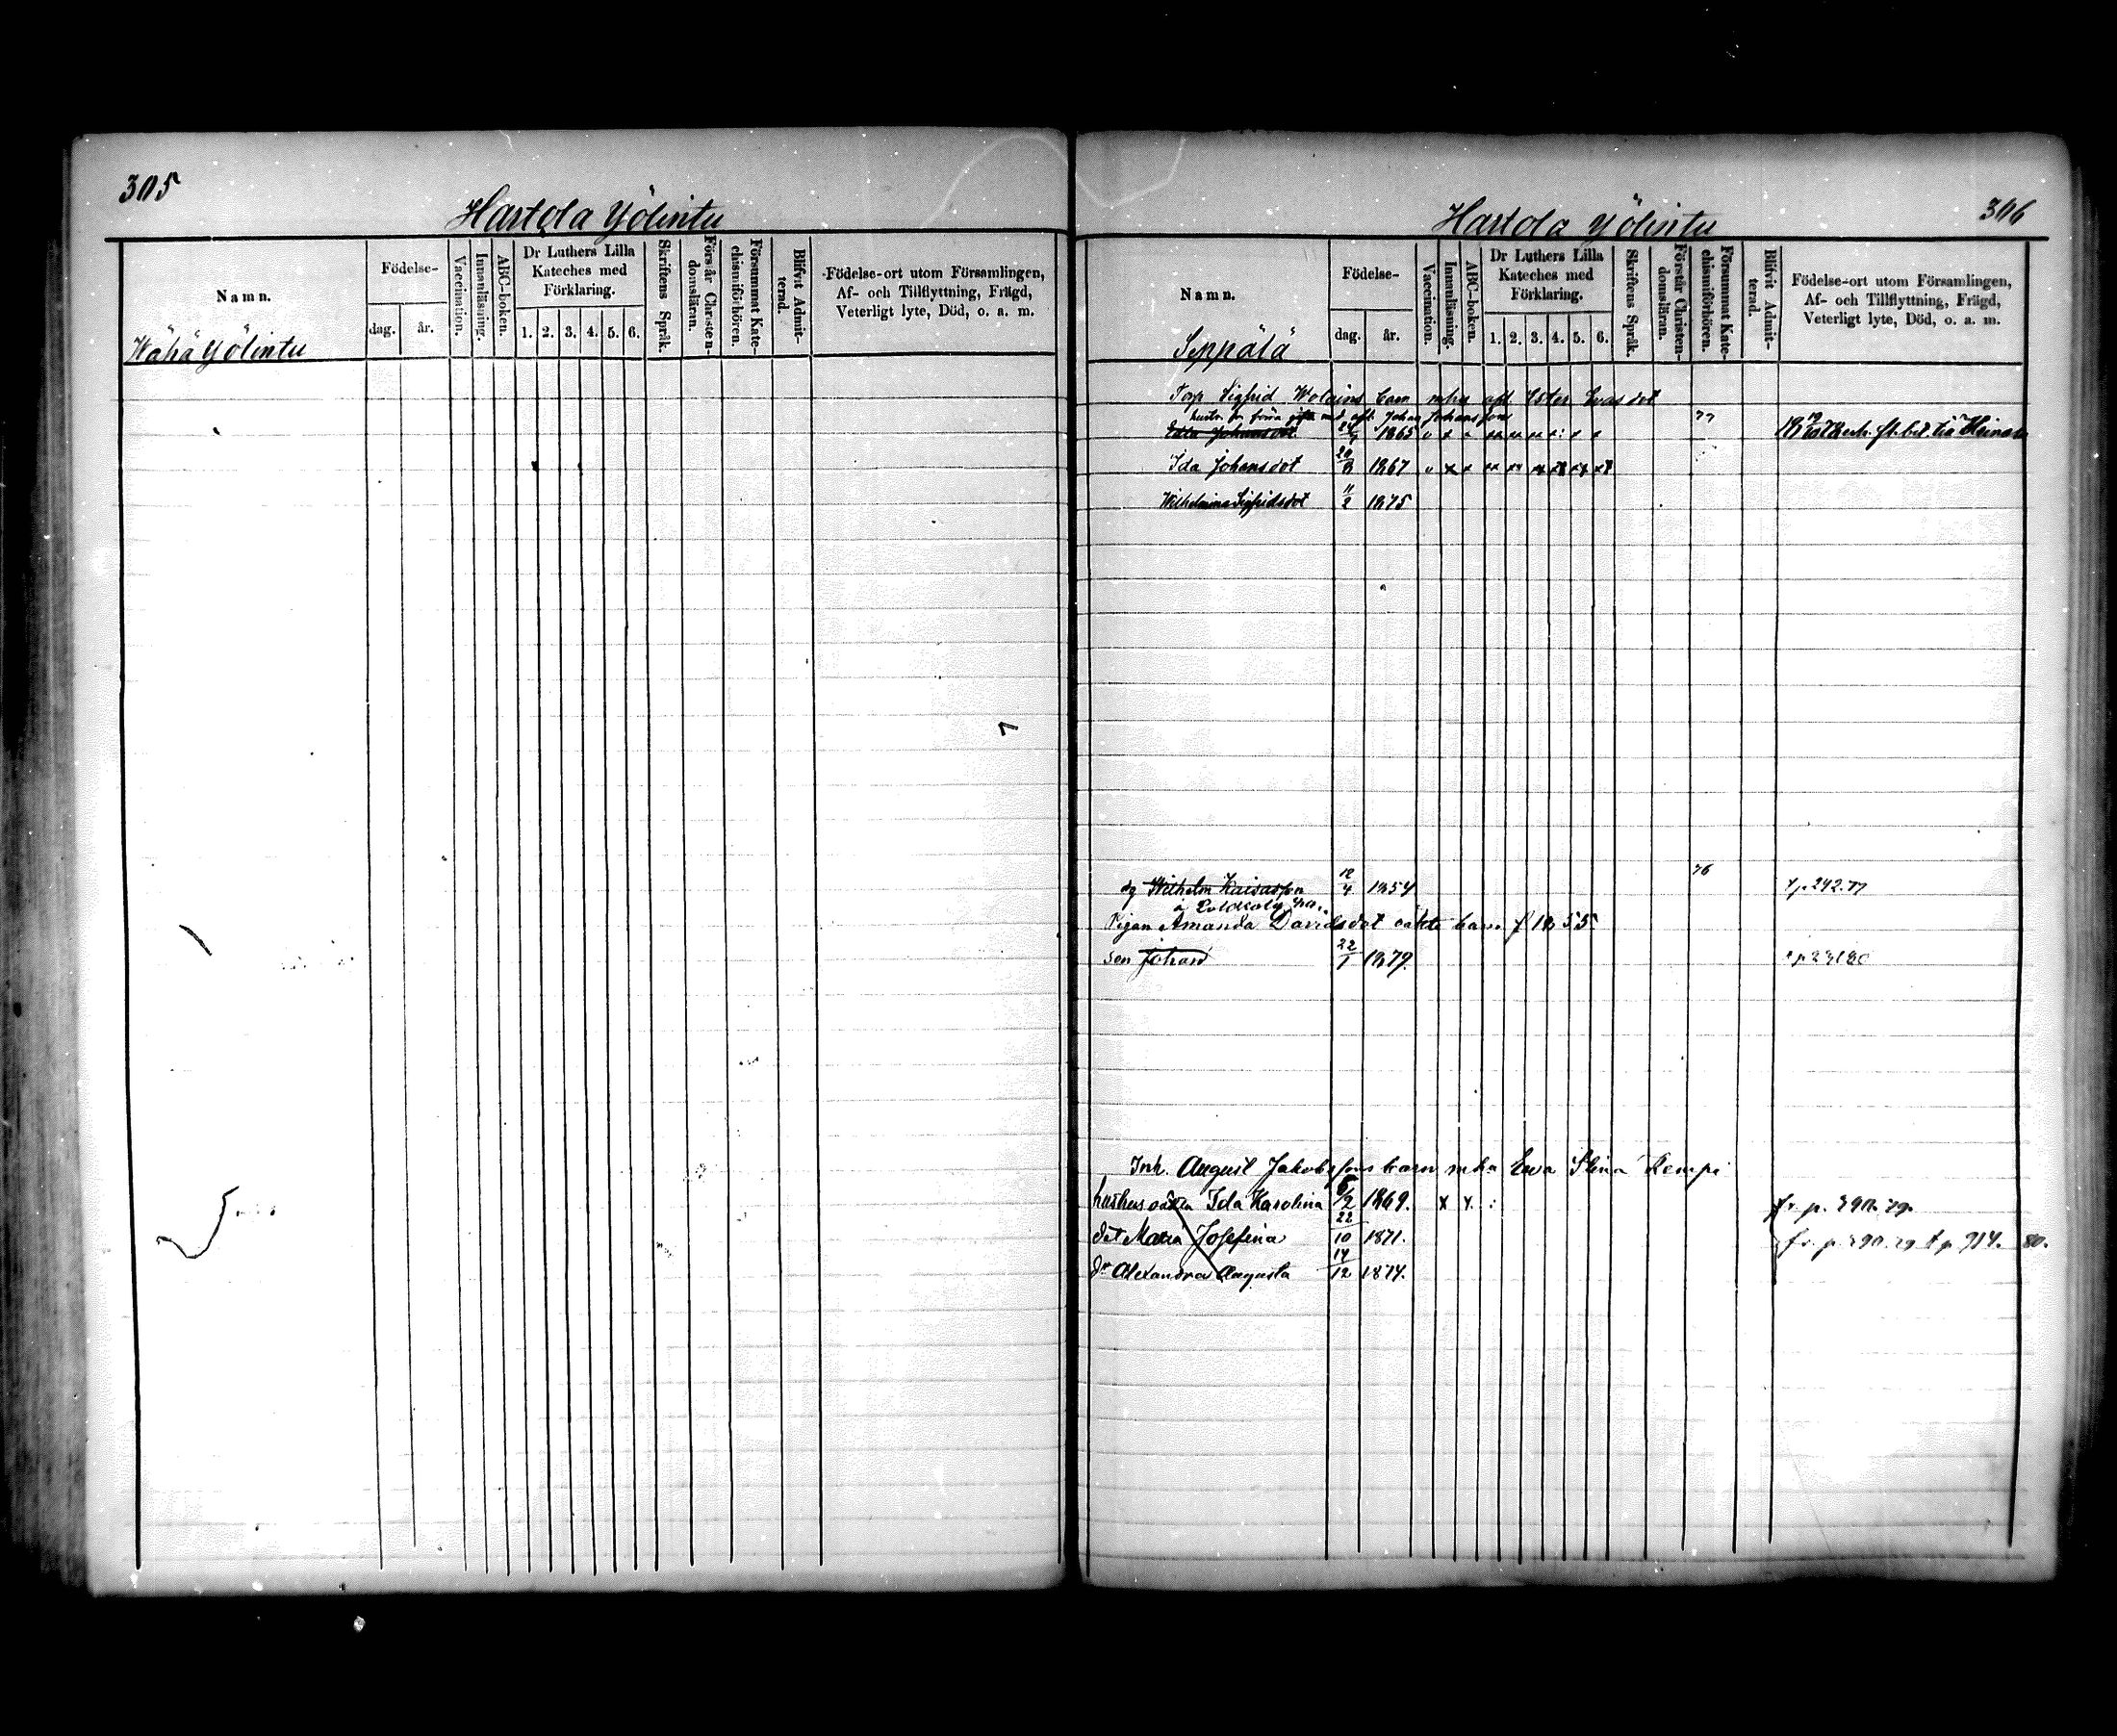 305
Hartola Yölintu
Namn.
Födelse-
dag.
år.
Vaccination.
Innanläsning.
ABC-boken.
Dr Luthers Lilla
Kateches med
Förklaring.
1. 2. 3. 4. 5. 6.
Skriftens Språk.
Förstår Christen-
domsläran.
Försummat Kate-
chismiförhören.
Blifvit Admit-
terad.
Födelse-ort utom Församlingen,
Af- och Tillflyttning, Frägd,
Veterligt lyte, Död, o. a. m.
Wähä Yölintu
306
Hartola Yölintu
Namn.
Födelse-
dag.
år.
Vaccination.
Innanläsning.
ABC-boken.
Dr Luthers Lilla
Kateches med
Förklaring.
1. 2. 3. 4. 5. 6.
Skriftens Språk.
Förstår Christen-
domsläran.
Försummat Kate-
chismiförhören.
Blifvit Admit-
terad.
Födelse-ort utom Församlingen,
Af- och Tillflyttning, Frägd,
Veterligt lyte, Död, o. a. m.
Seppälä
Torp Sigfrid barn mhu aft Ester Evasdot
förra med aft. Johan Johanssons
Edla Johansdot 1865
Ida Johansdot 1867
Wilhelmina Sigfridsdot 11/2 1875
76
dg Wilhelm Kaisasson 12/4 1854
Pigan Amanda Davidsdot oäkta barn f 1855
son Johan 22/1 1879.
Inh. August Jakobssons barn mha Ewa Stina Kempi
hustrus oäkta Ida Karolina 6/2 1869. x x :
dot Maria Josefina 22/10 1871. 80.
dr Alexandra Augusta 14/12 1874.